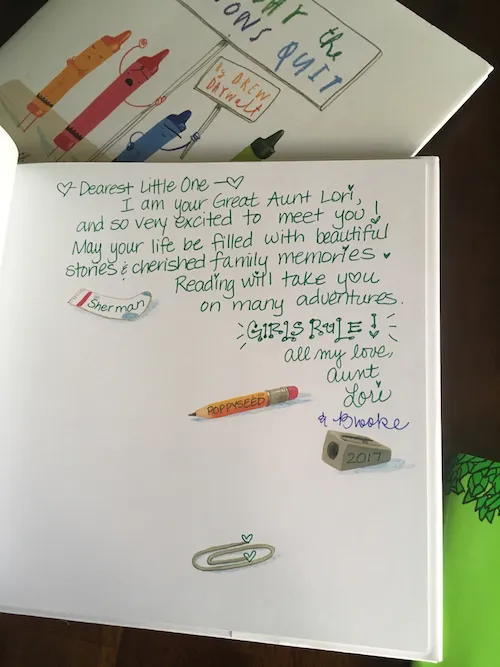 the
QUIT
by DREW
DAYWALT
♡ Dearest Little One ♡
I am your Great Aunt Lori,
and so very excited to meet you!
May your life be filled with beautiful
stories & cherished family memories ♥
Reading will take you
on many adventures.
Sherman
GIRLS RULE!
all my love,
aunt
Lori
POPPYSEED
& Brooke
2017